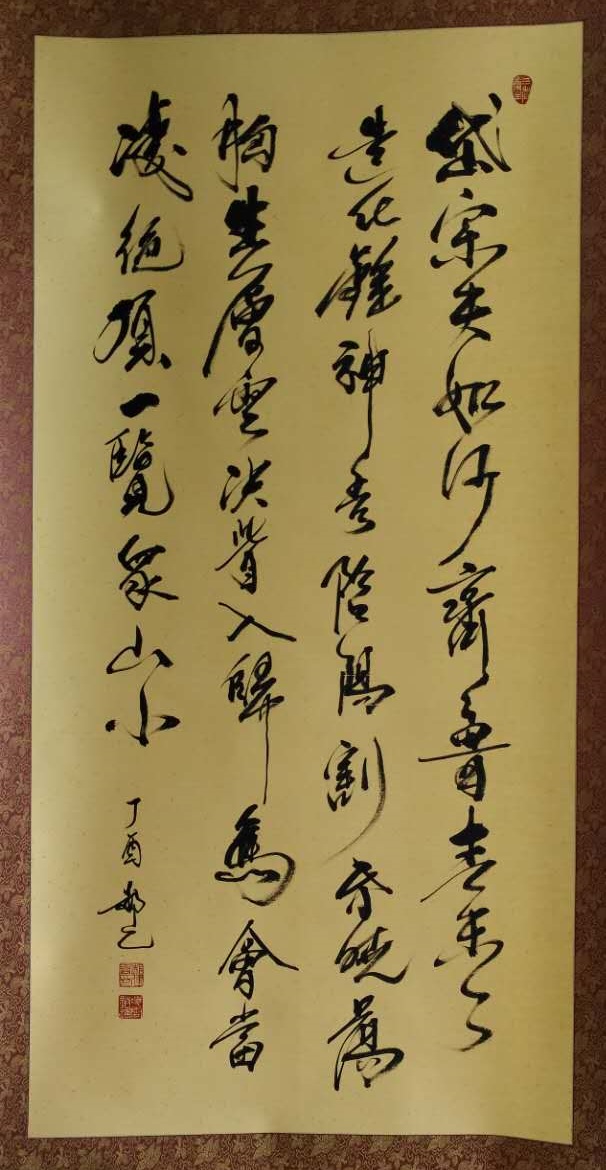 岱宗夫如何齊魯青未了
造化鍾神秀陰陽割昏曉蕩
胸生層雲決眥入歸鳥會當
凌絕頂一覽眾山小
丁酉